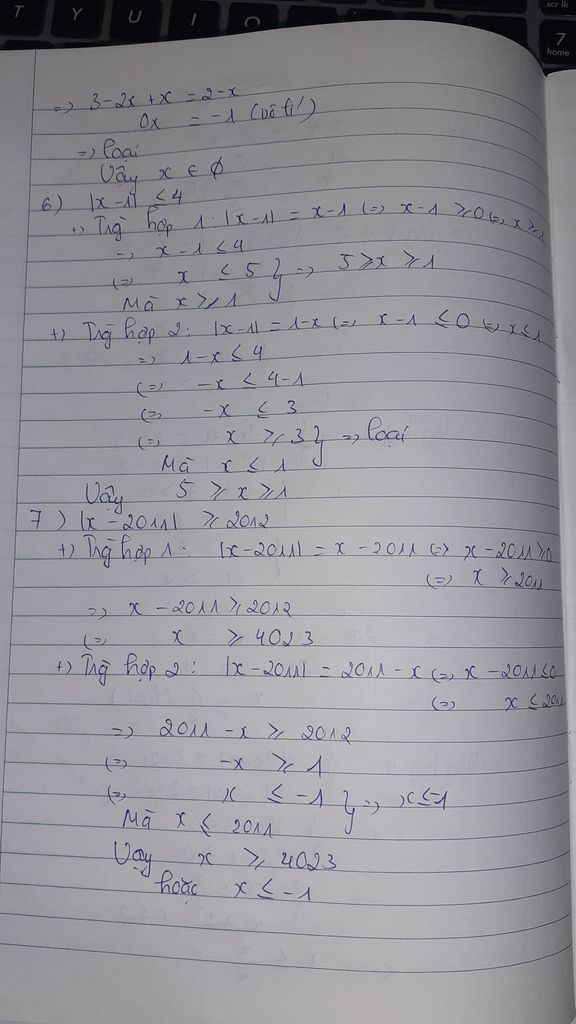 T Y U I O
scr lk
7
home
=> 3-2x+x = 2-x
0x = -1 (vô lí)
=> loại
Vậy x ∈ ∅
6) |x-1| ≤ 4
+) Trg hợp 1: |x-1| = x-1 (=) x-1 ≥ 0 (=) x ≥ 1
=> x-1 ≤ 4
(=) x ≤ 5 } => 5 ≥ x ≥ 1
Mà x ≥ 1
+) Trg hợp 2: |x-1| = 1-x (=) x-1 ≤ 0 (=) x ≤ 1
=> 1-x ≤ 4
(=) -x ≤ 4-1
(=) -x ≤ 3
(=) x ≥ 3 } => loại
Mà x ≤ 1
Vậy 5 ≥ x ≥ 1
7) |x-2011| ≥ 2012
+) Trg hợp 1: |x-2011| = x-2011 (=) x-2011 ≥ 0
(=) x ≥ 2011
=> x-2011 ≥ 2012
(=) x ≥ 4023
+) Trg hợp 2: |x-2011| = 2011-x (=) x-2011 ≤ 0
(=) x ≤ 2011
=> 2011-x ≥ 2012
(=) -x ≥ 1
(=) x ≤ -1 } => x ≤ -1
Mà x ≤ 2011
Vậy x ≥ 4023
hoặc x ≤ -1